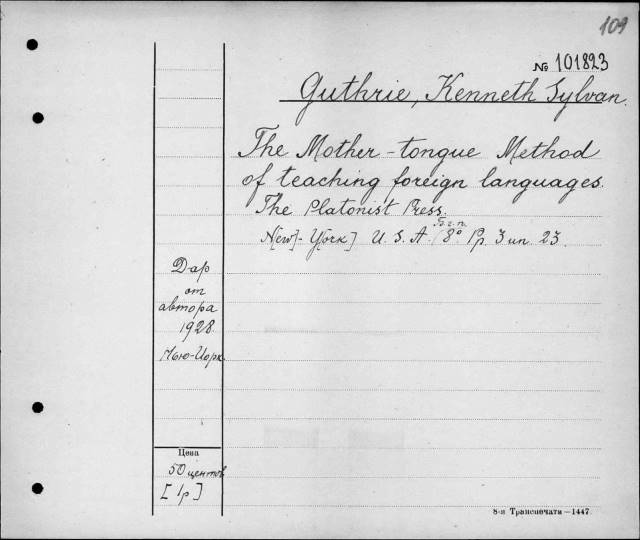 109
№ 101823
Guthrie, Kenneth Sylvan.
The Mother-tongue Method
of teaching foreign languages.
The Platonist Press.
Б. г. п.
N[ew]-Y[ork] U. S. A. 8° Pp. 3 un. 23.
Дар
от
автора
1928.
Нью-Иорк.
Цена
50 центов
[1р]
8-я Транспечати — 1447.